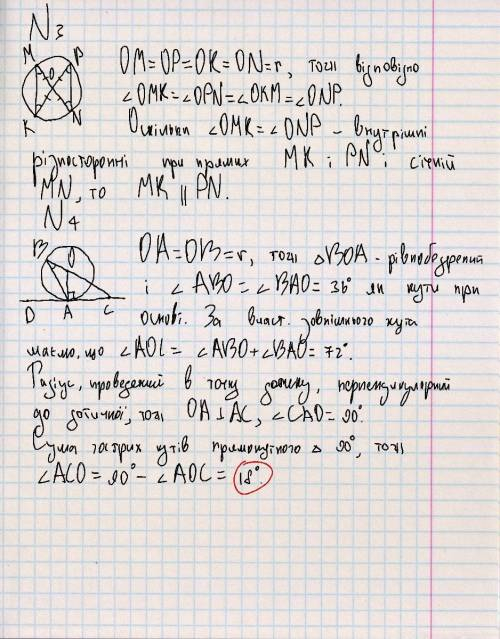 N3
M P
O
K N
OM=OP=OK=ON=r, тоді відповідно
∠OMK=∠OPN=∠OKM=∠ONP.
Оскільки ∠OMK=∠ONP - внутрішні
різносторонні при прямих MK і PN і січній
MN, то MK ∥ PN.
N4
B O
D A C
OA=OB=r, тоді △BOA - рівнобедрений
і ∠ABO=∠BAO=36° як кути при
основі. За власт. зовнішнього кута
маємо, що ∠AOC=∠ABO+∠BAO=72°
Радіус, проведений в точку дотику, перпендикулярний
до дотичної, тоді OA⊥AC, ∠CAO=90°.
Сума гострих кутів прямокутного △ 90°, тоді
∠ACO=90°-∠AOC=18°.